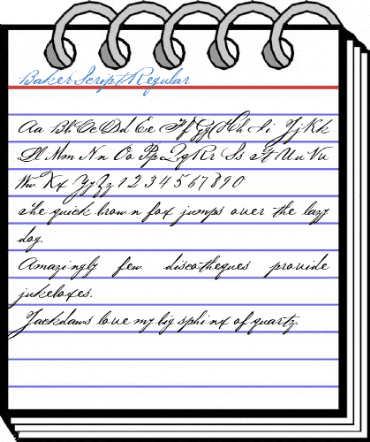 BakerScript Regular
Aa Bb Cc Dd Ee Ff Gg Hh Ii Jj Kk
Ll Mm Nn Oo Pp Qq Rr Ss Tt Uu Vv
Ww Xx Yy Zz 1 2 3 4 5 6 7 8 9 0
The quick brown fox jumps over the lazy
dog.
Amazingly few discotheques provide
jukeboxes.
Jackdaws love my big sphinx of quartz.